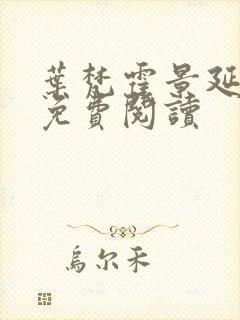 葉梵霆景延
免費閱讀
烏尔禾